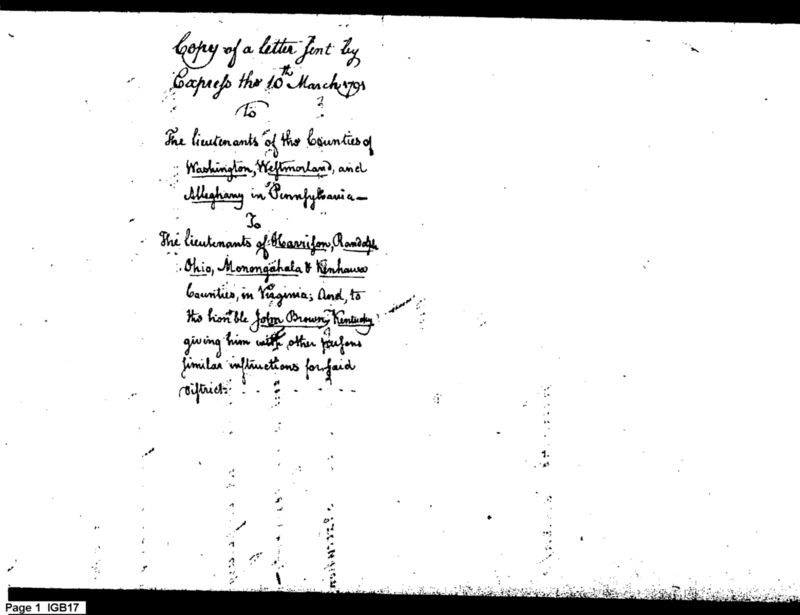 Copy of a letter sent by
Express the 10th March 1791
To
The lieutenants of the Counties of
Washington, Westmorland, and
Alleghany in Pennsylvania—
To
The lieutenants of Harrison, Randolph
Ohio, Monongahala & Kenhawa
Counties, in Virginia; And, to
the honble John Brown, Kentucky
giving him with other persons
similar instructions for said
District.
Page 1 IGB17